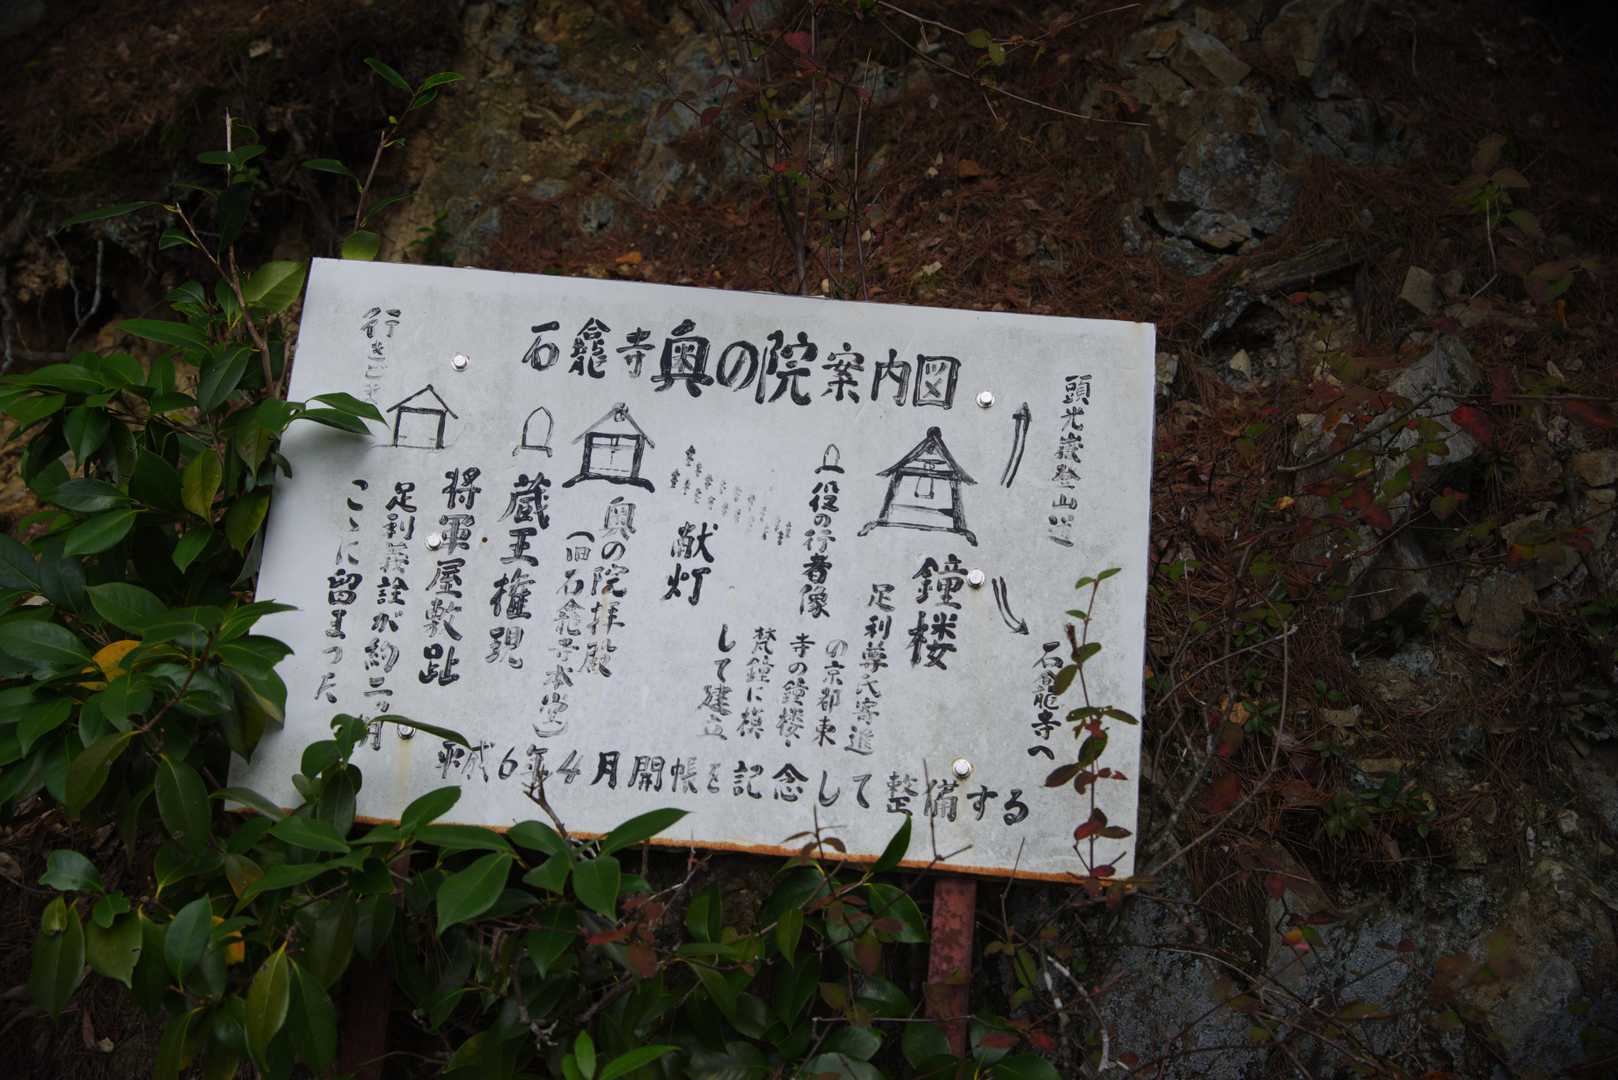 石龕寺奥の院案内図
頭光嶽登山道
石龕寺へ
鐘楼
足利尊氏寄進
の京都東
寺の鐘楼・
梵鐘に模
して建立
役の行者像
献灯
奥の院拝殿
(旧石龕寺本堂)
蔵王権現
将軍屋敷趾
足利義詮が約二ヶ月
ここに留まった
行き
平成6年4月開帳を記念して整備する